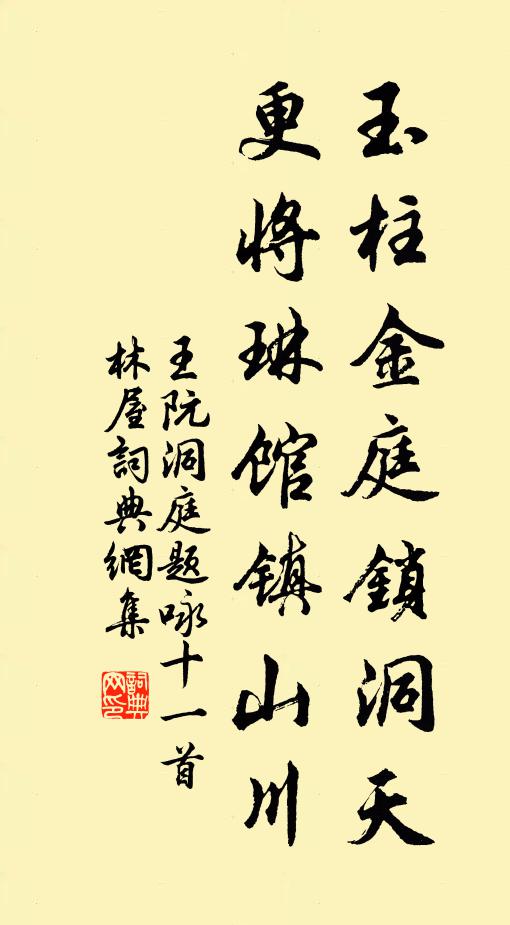 玉柱金庭鎖洞天
更將琳館鎮山川
王阮洞庭題咏十一首
林屋詞典網集
詞典網印